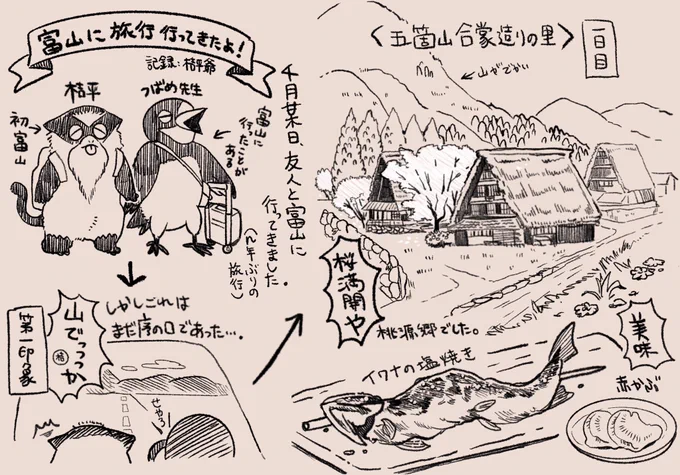 富山に旅行行ってきたよ!
記録:桔平爺
桔平
つばめ先生
初富山
富山に
行ったことが
ある
千月某日、友人と富山に
行ってきました。
(2年ぶりの
旅行)
しかしこれは
まだ序の口であった…。
山でっっっか
桔
第一印象
せやろ
一日目
〈五箇山合掌造りの里〉
山がでかい
桜満開や
桃源郷でした。
イワナの塩焼き
美味
赤かぶ